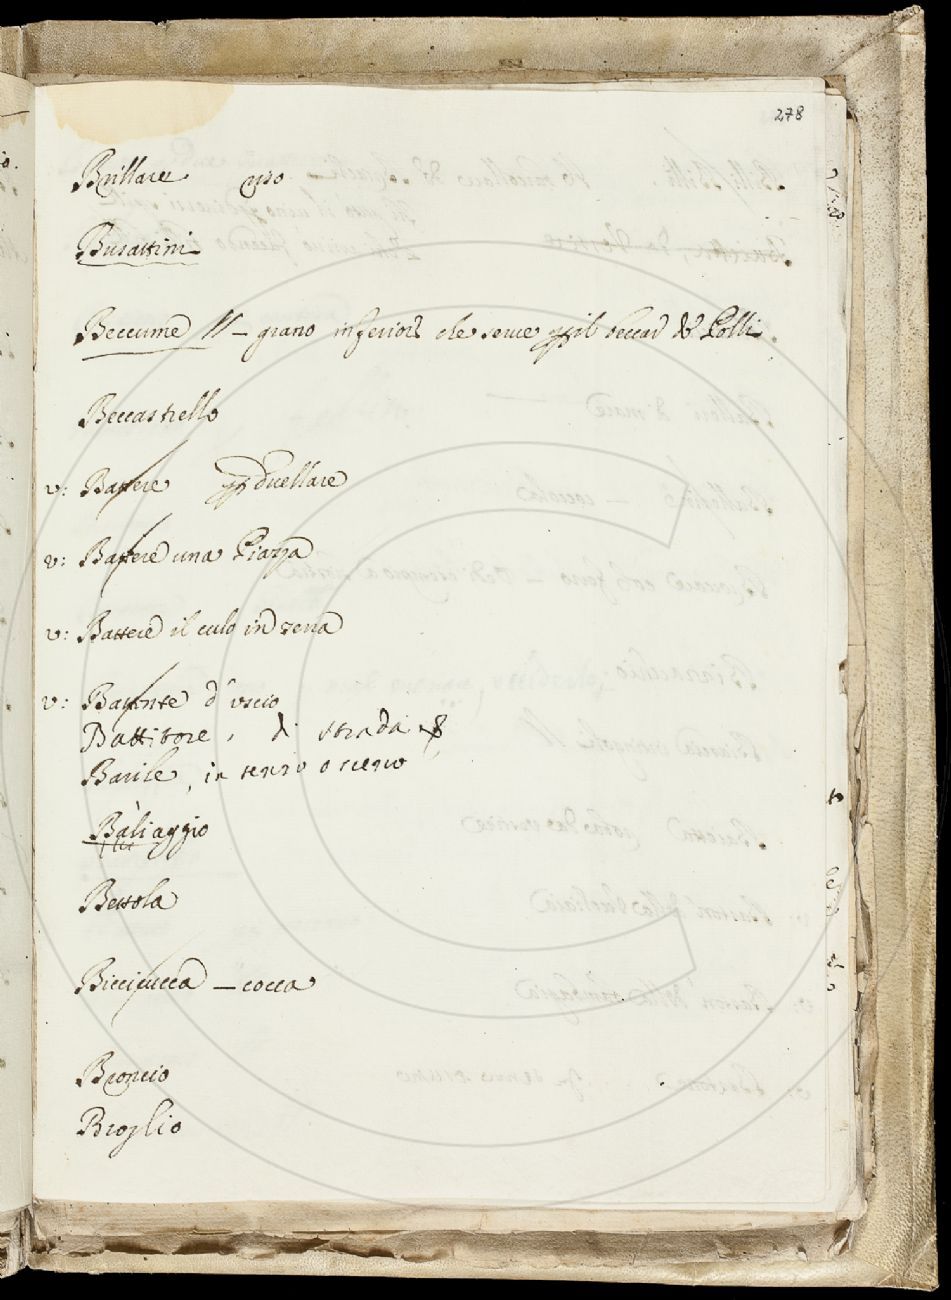 278
Brillare uso
Busattini
Beccume // – grano inferiore che serve p il beccar de Polli.
Beccastrello
v: Battere p duellare
v: Battere una Piazza
v: Battere il culo in terra
v: Battente d'uscio
Battitore, di strada
Barile, in senso osceno
Baliaggio
Bettola
Biccicucca – cocca
Broncio
Broglio